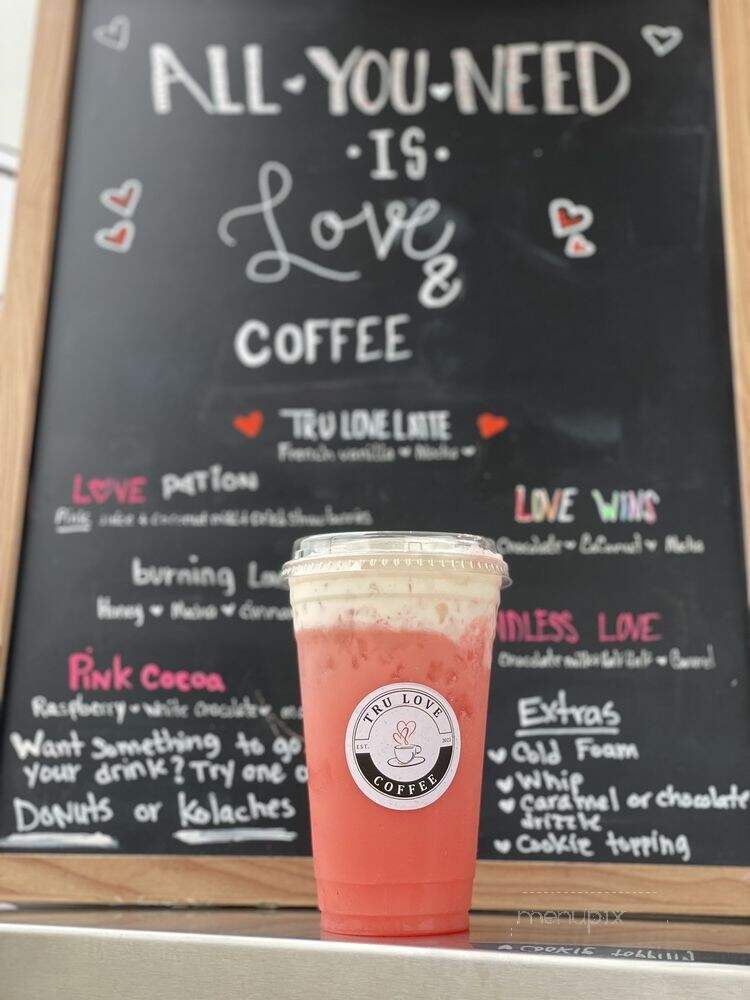 ALL YOU NEED
IS
Love
&
COFFEE
TRU LOVE LATTE
French vanilla Mocha
LOVE POTION
Pink
LOVE WINS
Chocolate Coconut Mocha
burning
Honey
NDLESS LOVE
PINK COCOA
Raspberry white chocolate
Extras
Want something to go
your drink? Try one o
DONUTS or Kolaches
Cold Foam
Whip
Caramel or chocolate
drizzle
Cookie topping
TRU LOVE
EST.
COFFEE
menupix